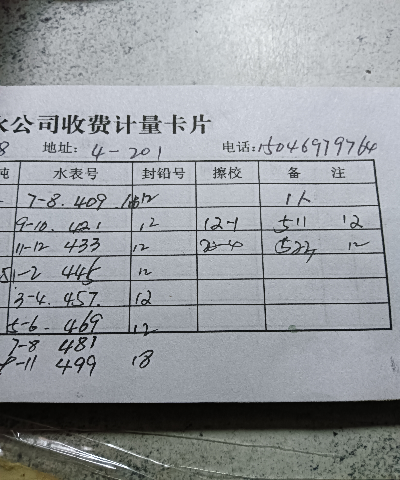 水公司收费计量卡片
8 地址: 4-201 电话: 15046979764
吨 水表号 封铅号 擦校 备 注
7-8. 409 12 1人
9-10. 421 12 12-1 511 12
11-12 433 12 523 12
1-2 445 12
3-4. 457. 12
5-6. 469 12
7-8 481
9-11 499 18